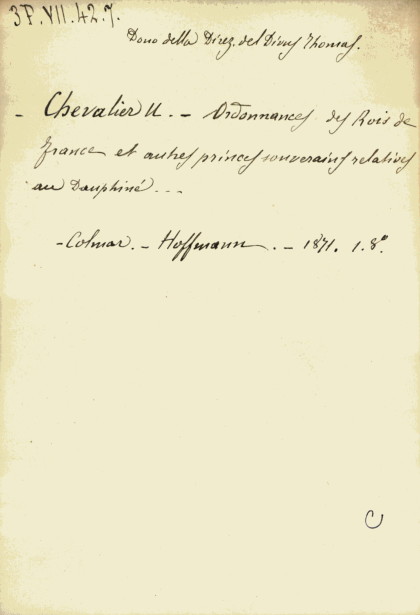 3P.VII.42.7.
Dono della Direz. del Divus Thomas.
- Chevalier U. - Ordonnances des Rois de
France et autres princes souverains relatives
au Dauphiné...
- Colmar. - Hoffmann. - 1871. 1. 8°.
C